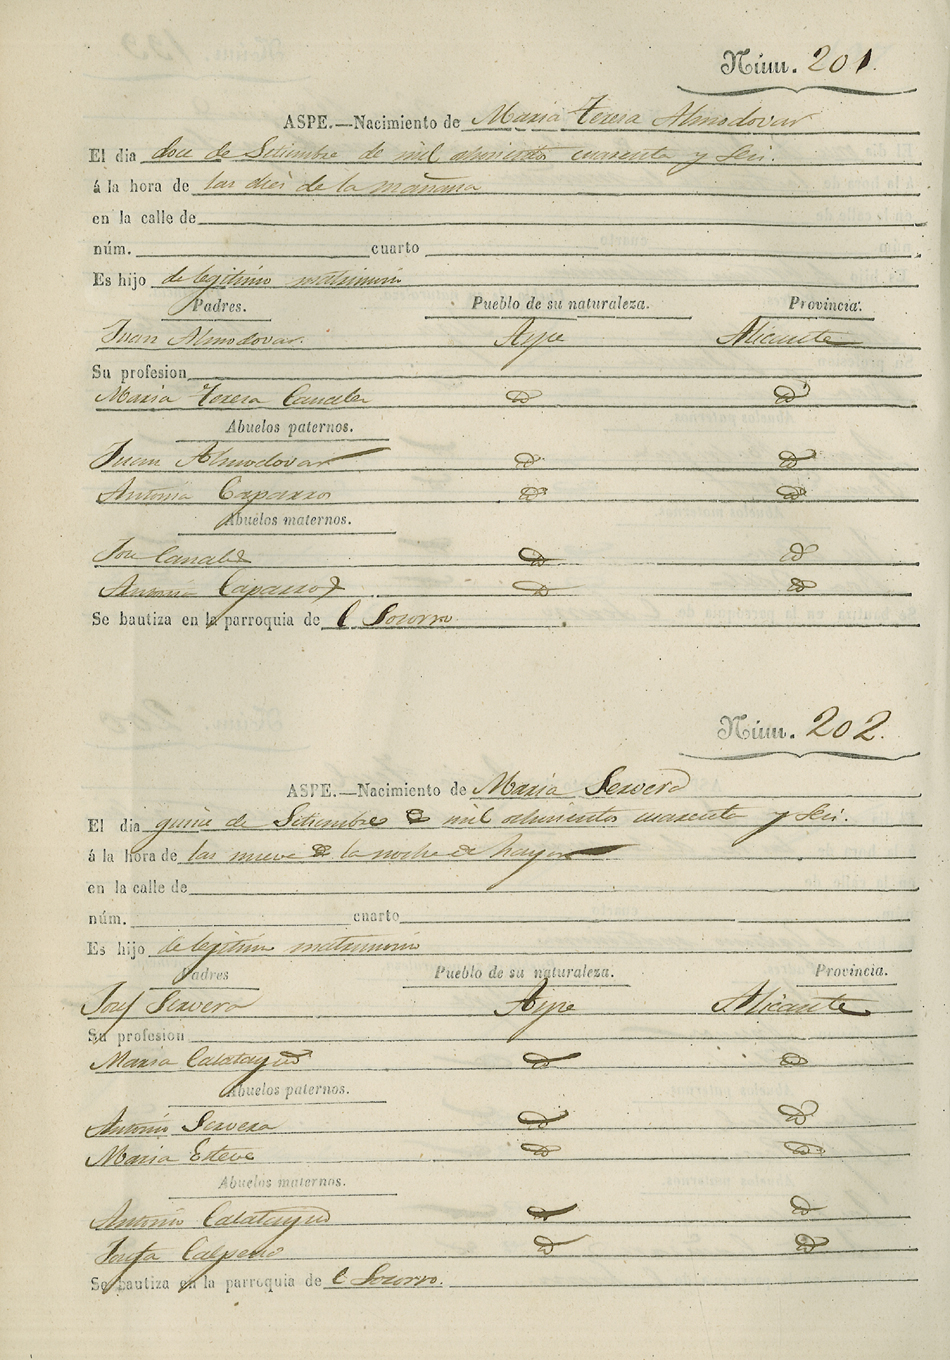 Núm. 201.
ASPE.—Nacimiento de Maria Teresa Almodovar
El dia doce de Setiembre de mil ochocientos cuarenta y seis.
á la hora de las diez de la mañana
en la calle de
núm. cuarto
Es hijo de legitimo matrimonio
Padres. Pueblo de su naturaleza. Provincia.
Juan Almodovar. Aspe Alicante
Su profesion
Maria Teresa Canals id id
Abuelos paternos.
Juan Almodovar id id
Antonia Caparros id id
Abuelos maternos.
Jose id id
Antonia Caparros id id
Se bautiza en la parroquia de El Socorro.
Núm. 202.
ASPE.—Nacimiento de Maria Servero
El dia quince de Setiembre de mil ochocientos cuarenta y seis.
á la hora de las nueve de la noche de
en la calle de
núm. cuarto
Es hijo de legitimo matrimonio
Padres Pueblo de su naturaleza. Provincia.
Josef Servero Aspe Alicante
Su profesion
Maria Calatayud id id
Abuelos paternos.
Antonio Servero id id
Maria Esteve id id
Abuelos maternos.
Antonio Calatayud id id
Josefa Calpena id id
Se bautiza en la parroquia de El Socorro.